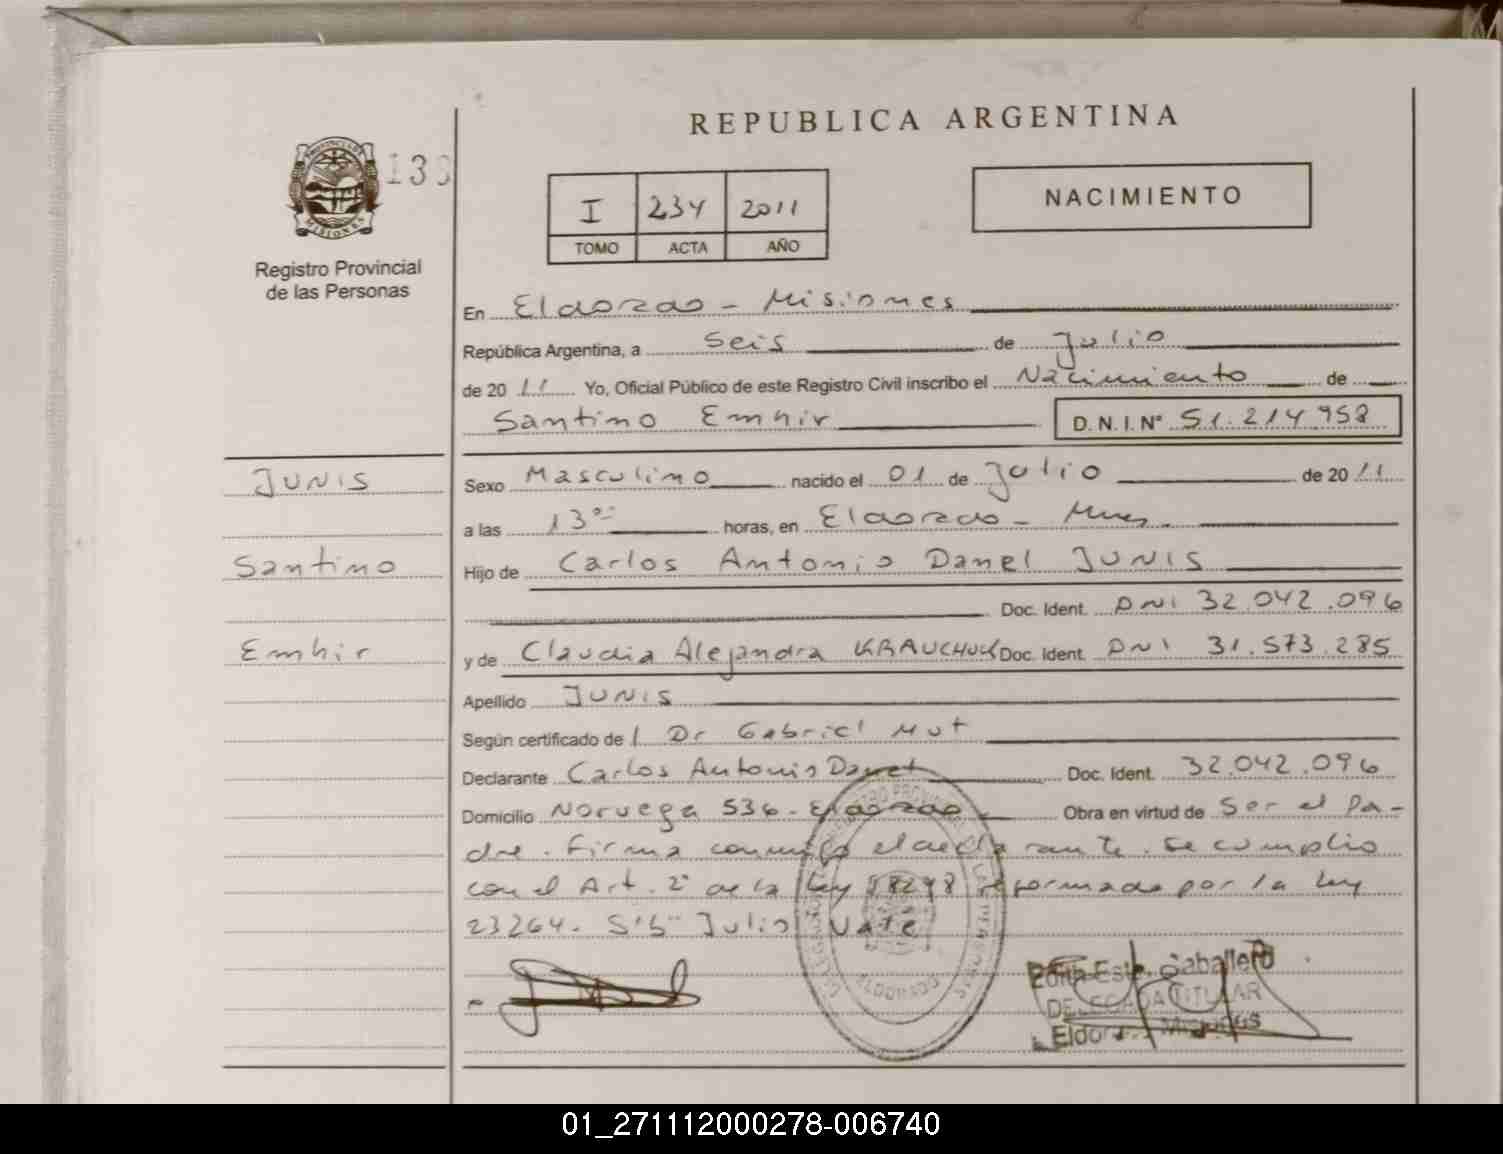 REPUBLICA ARGENTINA
PROVINCIA DE
MISIONES
Registro Provincial
de las Personas
I 234 2011
TOMO ACTA AÑO
NACIMIENTO
En Eldorado - Misiones
República Argentina, a seis de Julio
de 2011 Yo, Oficial Público de este Registro Civil inscribo el Nacimiento de
Santino Emhir D.N.I.Nº 51.214.958
JUNIS
Santino
Emhir
Sexo Masculino nacido el 01 de Julio de 2011
a las 13 horas, en Eldorado - Mnes
Hijo de Carlos Antonio Danel JUNIS
Doc. Ident. DNI 32.042.096
y de Claudia Alejandra KRAUCHUK Doc. Ident. DNI 31.573.285
Apellido JUNIS
Según certificado de Dr Gabriel Mut
Declarante Carlos Antonio Danel Doc. Ident. 32.042.096
Domicilio Noruega 536 - Eldorado Obra en virtud de Ser el Pa-
dre. Firma conmigo el declarante. Se cumplio
con el Art. 2° de la Ley 18248 reformada por la Ley
23264. Julio Vate
ELDORADO
Edith Caballero
DELEGADA TITULAR
Eldorado Misiones
01_271112000278-006740